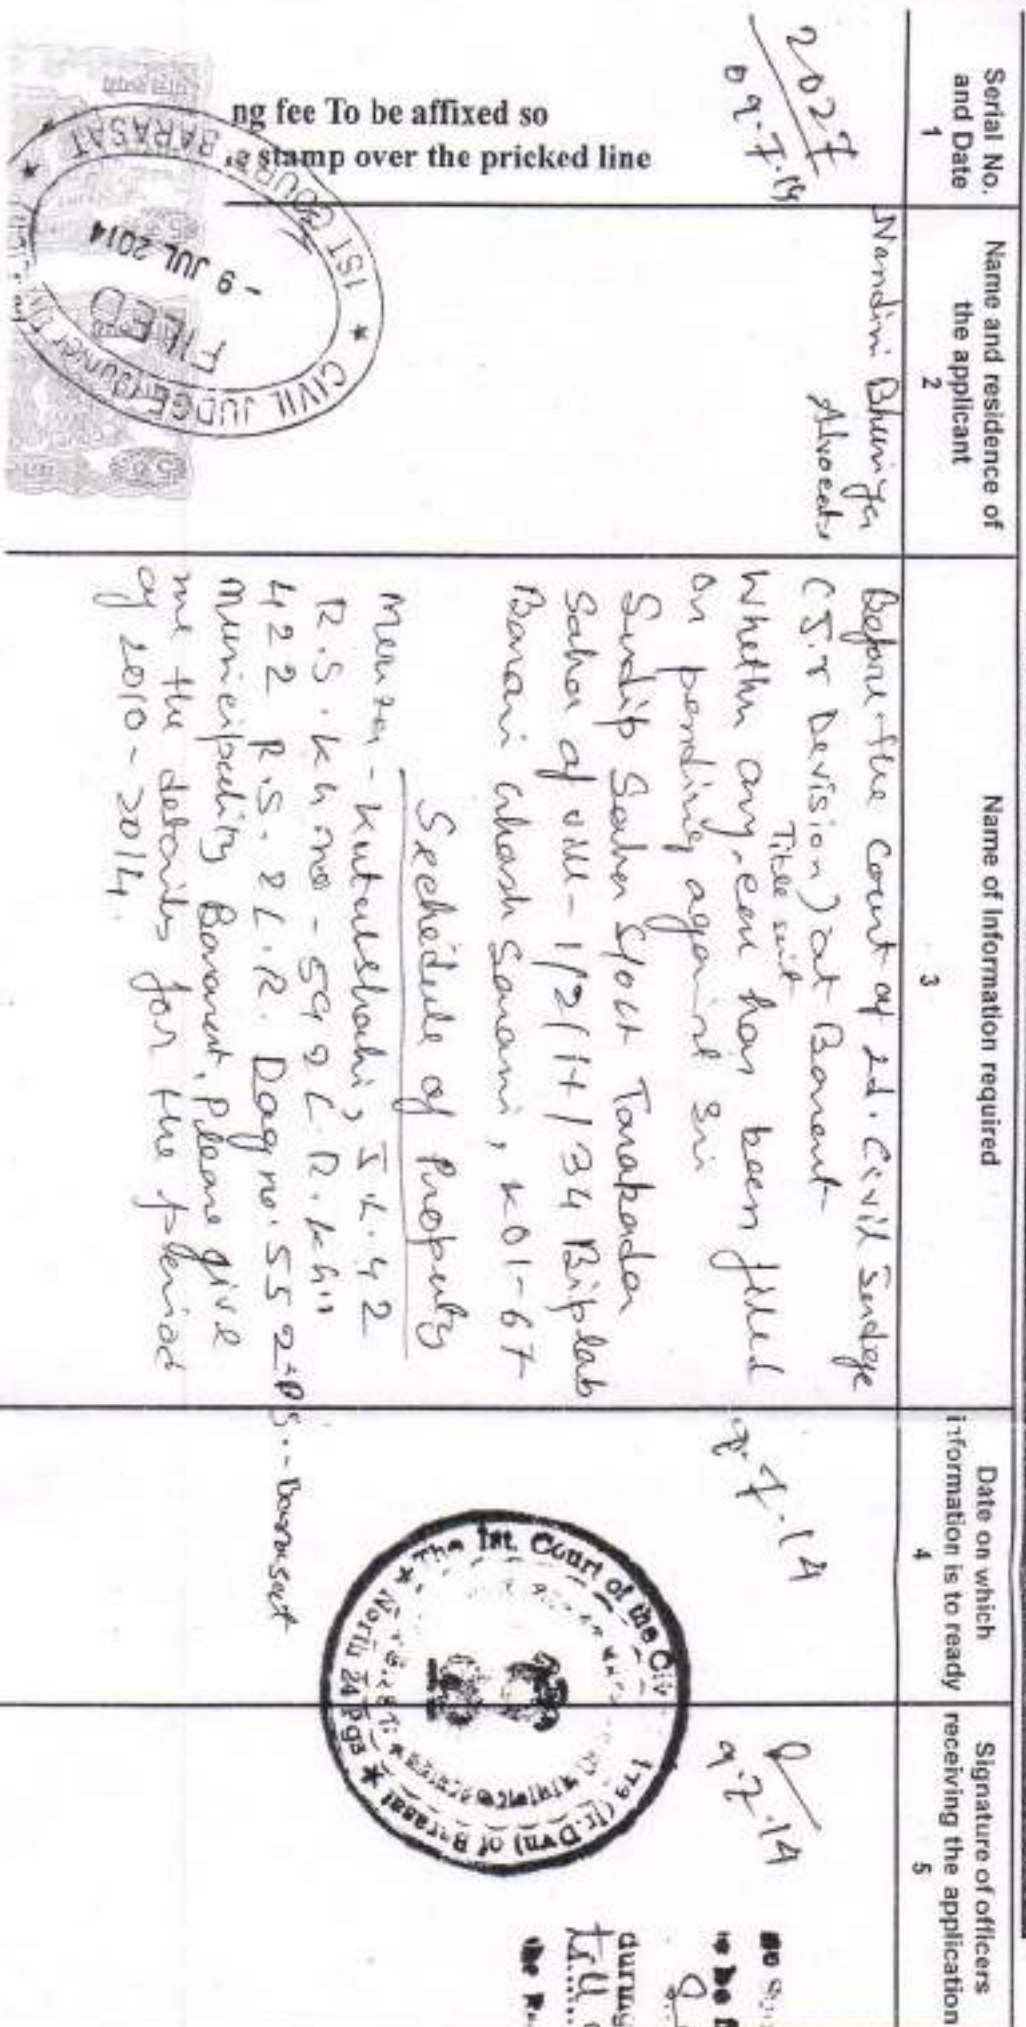 Serial No.
and Date
1
Name and residence of
the applicant
2
Name of Information required
3
Date on which
information is to ready
4
Signature of officers
receiving the application
5
2027
09.7.14
Nandini Bhuniya
Advocate
Before the Court of 2d. Civil Jundge
(J.r Devision) at Barasat
Title suit
Whether any case has been filed
on pending against Sri
Sudip Saha S/o Lt Tarakadar
Saha of vill - 1/2/14/34 Biplab
Barani Ghosh Sarani, KOl-67
Secheidule of Property
Mouza - Kutulshahi, J.L. 42
R.S. Kh no - 592 L.R. Kh
422 R.S. & L.R. Dag no. 552 P.S. - Barasat
Municipality Barasat, Please give
me the details for the period
of 2010 - 2014.
9.7.14
9.7.14
ng fee To be affixed so
stamp over the pricked line
CIVIL JUDGE (Junior
1ST COURT BARASAT
FILED
- 9 JUL 2014
The 1st. Court of the Civ
(Jr. Dvn) of Barasat
North 24 Pgs
be
during
till
the